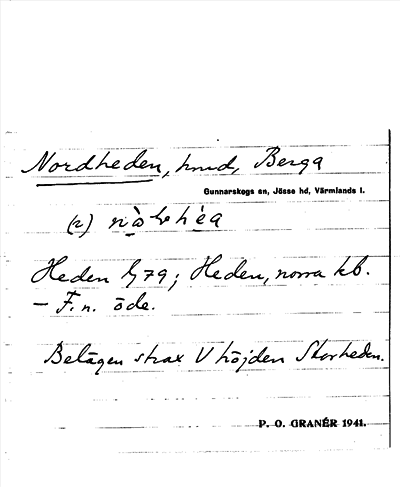 Nordheden, hmd, Berga
Gunnarskogs sn, Jösse hd, Värmlands l.
(2)
Heden 79; Heden, norra kb.
– F.n. öde.
Belägen strax V höjden Storheden.
P. O. GRANÉR 1941.